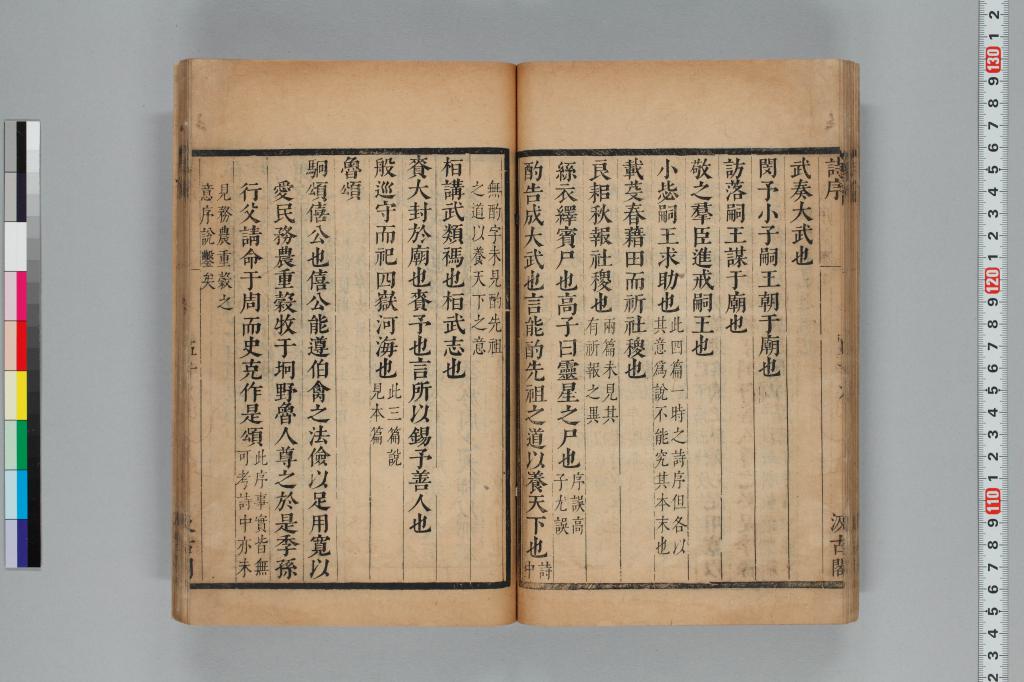 詩序
汲古閣
武奏大武也
閔予小子嗣王朝于廟也
訪落嗣王謀于廟也
敬之羣臣進戒嗣王也
小毖嗣王求助也此四篇一時之詩序但各以
其意爲說不能究其本末也
載芟春藉田而祈社稷也
良耜秋報社稷也兩篇未見其
有祈報之異
絲衣繹賓尸也高子曰靈星之尸也序誤高
子尤誤
酌告成大武也言能酌先祖之道以養天下也詩
中
無酌字未見酌先祖
之道以養天下之意
桓講武類禡也桓武志也
賚大封於廟也賚予也言所以錫予善人也
般巡守而祀四嶽河海也此三篇說
見本篇
魯頌
駉頌僖公也僖公能遵伯禽之法儉以足用寬以
愛民務農重穀牧于坰野魯人尊之於是季孫
行父請命于周而史克作是頌此序事實皆無
可考詩中亦未
見務農重穀之
意序說鑿矣